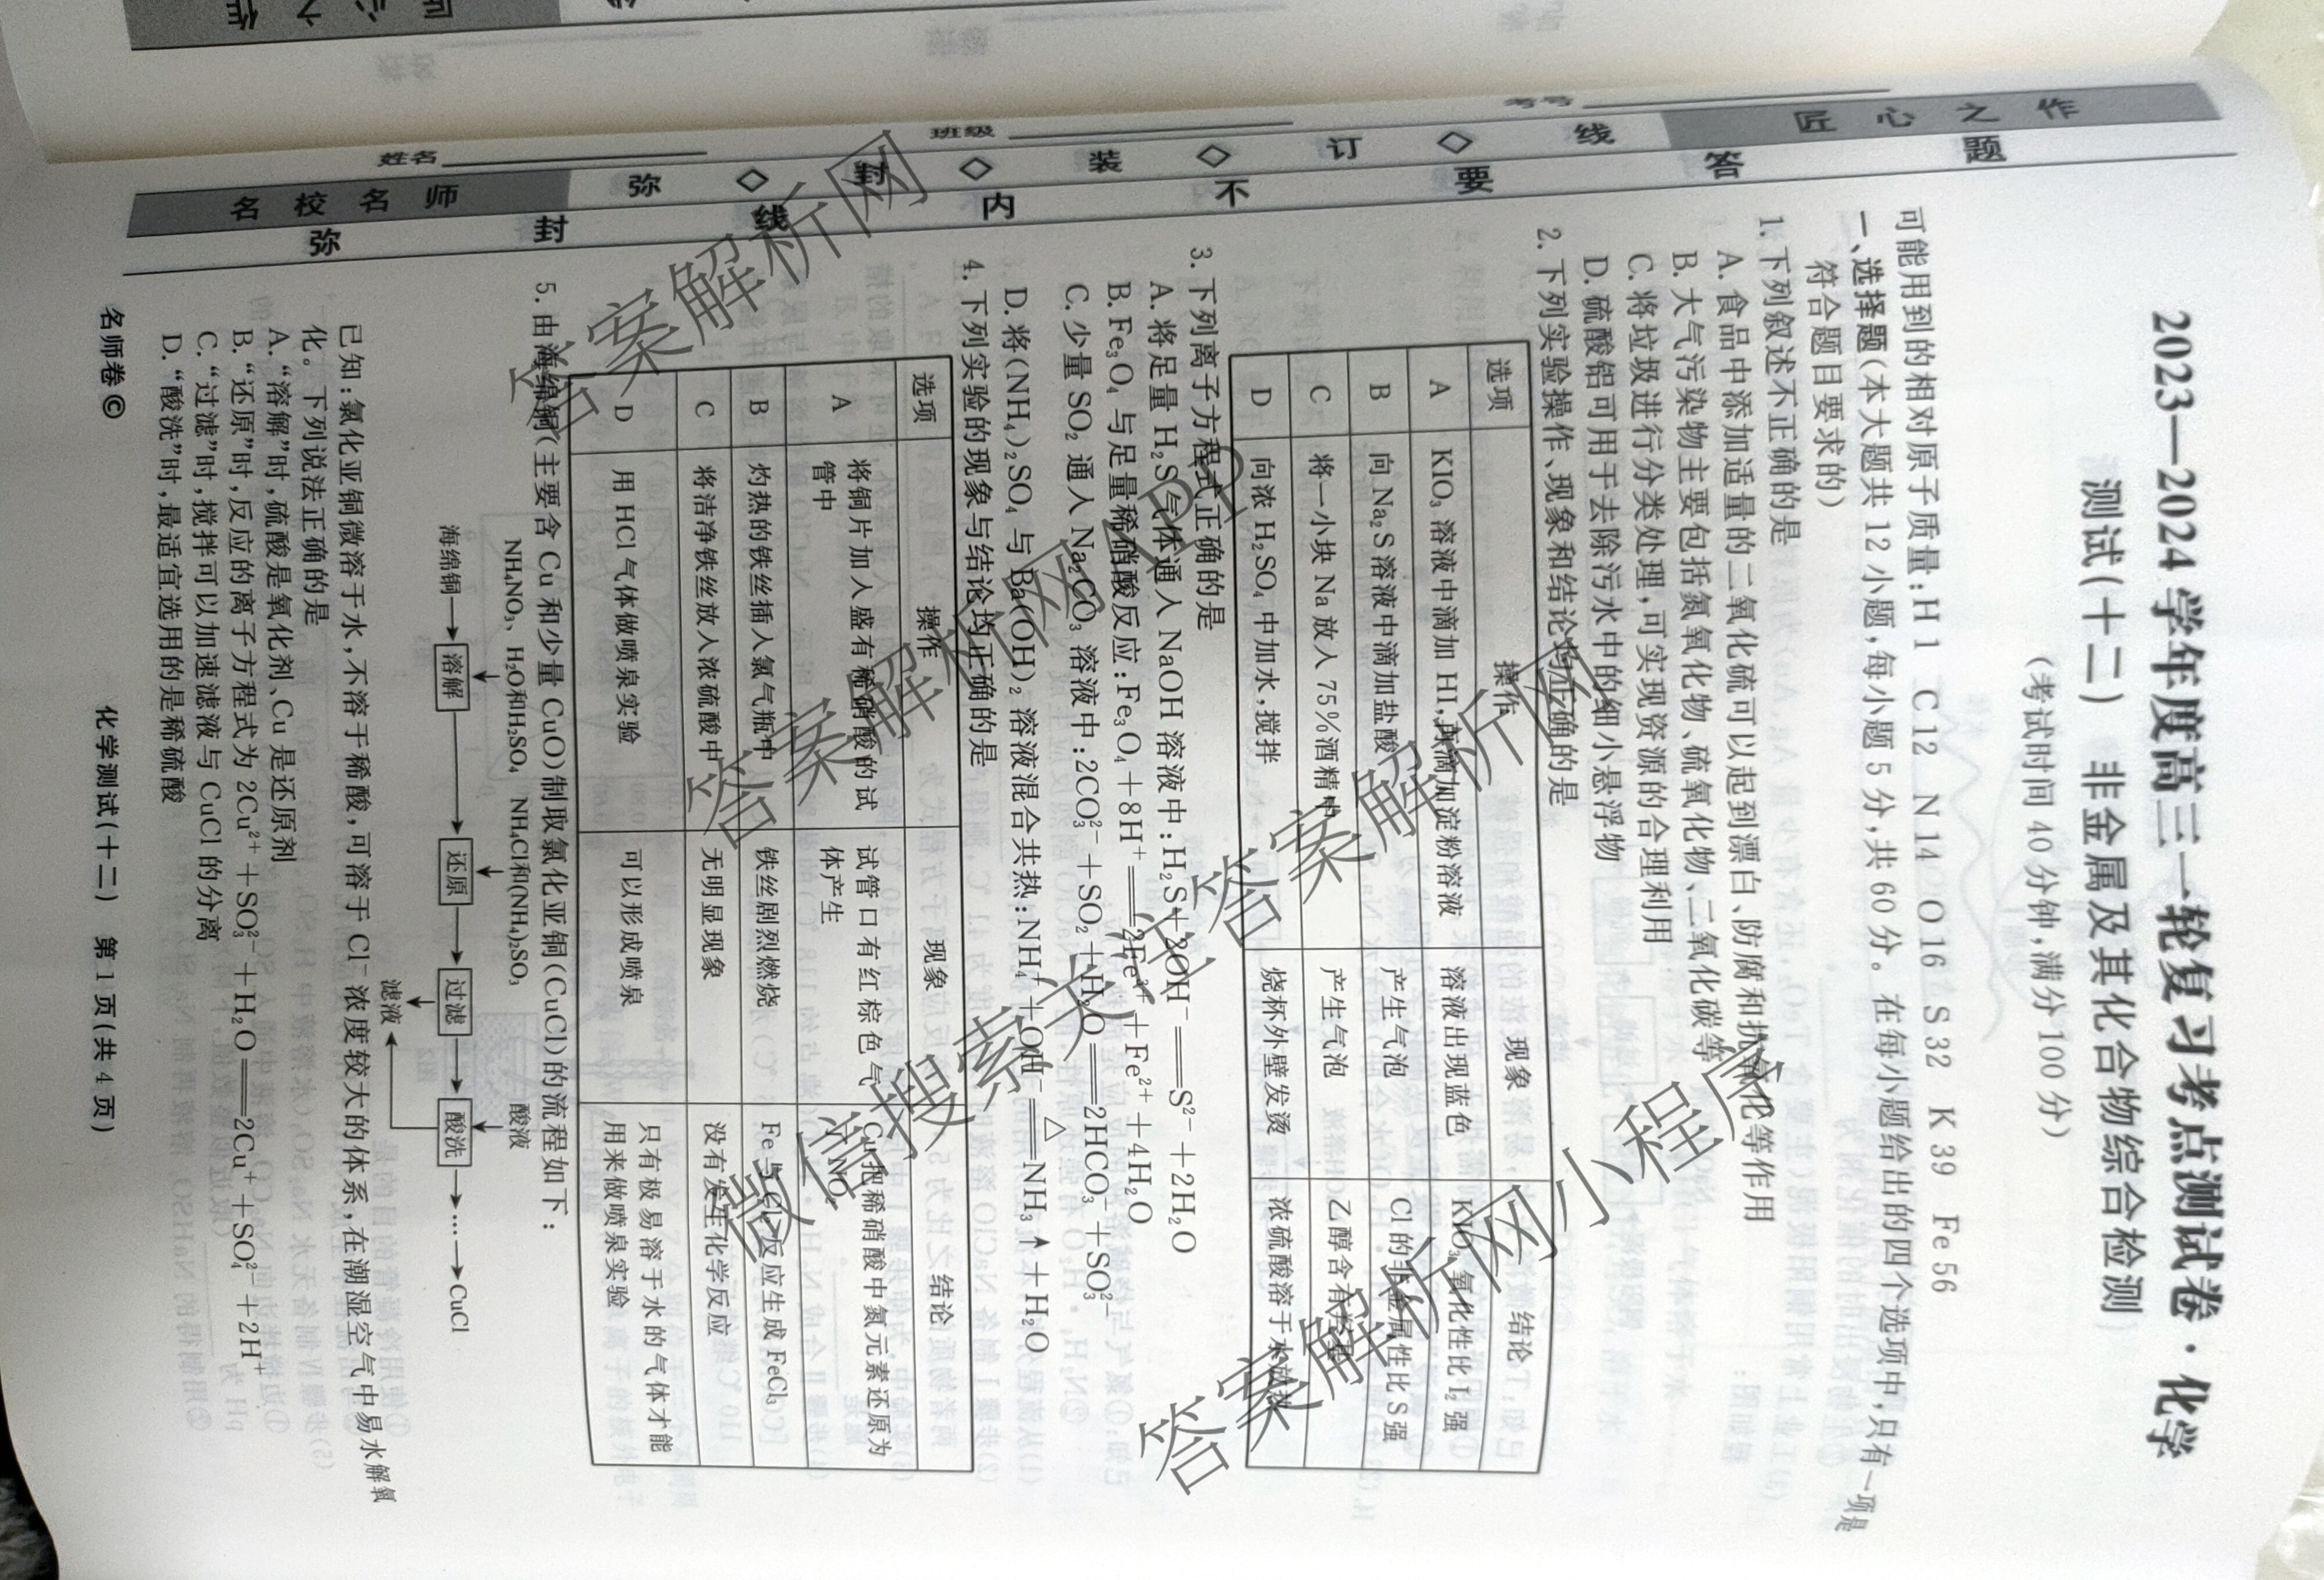 2023—2024学年度高三一轮复习考点测试卷·化学
测试(十二) 非金属及其化合物综合检测
(考试时间40分钟,满分100分)
可能用到的相对原子质量:H 1 C 12 N 14 O 16 S 32 K 39 Fe 56
一、选择题(本大题共12小题,每小题5分,共60分。在每小题给出的四个选项中,只有一项是
符合题目要求的)
1. 下列叙述不正确的是
A. 食品中添加适量的二氧化硫可以起到漂白、防腐和抗氧化等作用
B. 大气污染物主要包括氮氧化物、硫氧化物、二氧化碳等
C. 将垃圾进行分类处理,可实现资源的合理利用
D. 硫酸铝可用于去除污水中的细小悬浮物
2. 下列实验操作、现象和结论均正确的是
选项 操作 现象 结论
A KIO₃溶液中滴加HI,再滴加淀粉溶液 溶液出现蓝色 KIO₃氧化性比I₂强
B 向Na₂S溶液中滴加盐酸 产生气泡 Cl的非金属性比S强
C 将一小块Na放入75%酒精中 产生气泡 乙醇含有
D 向浓H₂SO₄中加水,搅拌 烧杯外壁发烫 浓硫酸溶于水放热
3. 下列离子方程式正确的是
A. 将足量H₂S气体通入NaOH溶液中:H₂S+2OH⁻══S²⁻+2H₂O
B. Fe₃O₄与足量稀硝酸反应:Fe₃O₄+8H⁺══2Fe³⁺+Fe²⁺+4H₂O
C. 少量SO₂通入Na₂CO₃溶液中:2CO₃²⁻+SO₂+H₂O══2HCO₃⁻+SO₃²⁻
D. 将(NH₄)₂SO₄与Ba(OH)₂溶液混合共热:NH₄⁺+OH⁻══△NH₃↑+H₂O
4. 下列实验的现象与结论均正确的是
选项 操作 现象 结论
A 将铜片加入盛有稀硝酸的试管中 试管口有红棕色气体产生 Cu把稀硝酸中氮元素还原为了NO₂
B 灼热的铁丝插入氯气瓶中 铁丝剧烈燃烧 Fe与Cl₂反应生成FeCl₃
C 将洁净铁丝放入浓硫酸中 无明显现象 没有发生化学反应
D 用HCl气体做喷泉实验 可以形成喷泉 只有极易溶于水的气体才能用来做喷泉实验
5. 由海绵铜(主要含Cu和少量CuO)制取氯化亚铜(CuCl)的流程如下:
NH₄NO₃、H₂O和H₂SO₄ NH₄Cl和(NH₄)₂SO₃ 酸液
海绵铜→溶解→还原→过滤→酸洗→…→CuCl
滤液
已知:氯化亚铜微溶于水,不溶于稀酸,可溶于Cl⁻浓度较大的体系,在潮湿空气中易水解氧
化。下列说法正确的是
A. “溶解”时,硫酸是氧化剂、Cu是还原剂
B. “还原”时,反应的离子方程式为2Cu²⁺+SO₃²⁻+H₂O══2Cu⁺+SO₄²⁻+2H⁺
C. “过滤”时,搅拌可以加速滤液与CuCl的分离
D. “酸洗”时,最适宜选用的是稀硫酸
名师卷© 化学测试(十二) 第1页(共4页)
考号
班级
姓名
匠心之作
名校名师
弥◇封◇装◇订◇线
弥封线内不要答题
答案解析网
答案解析网APP
答案解析网
微信搜索
答案解析网小程序